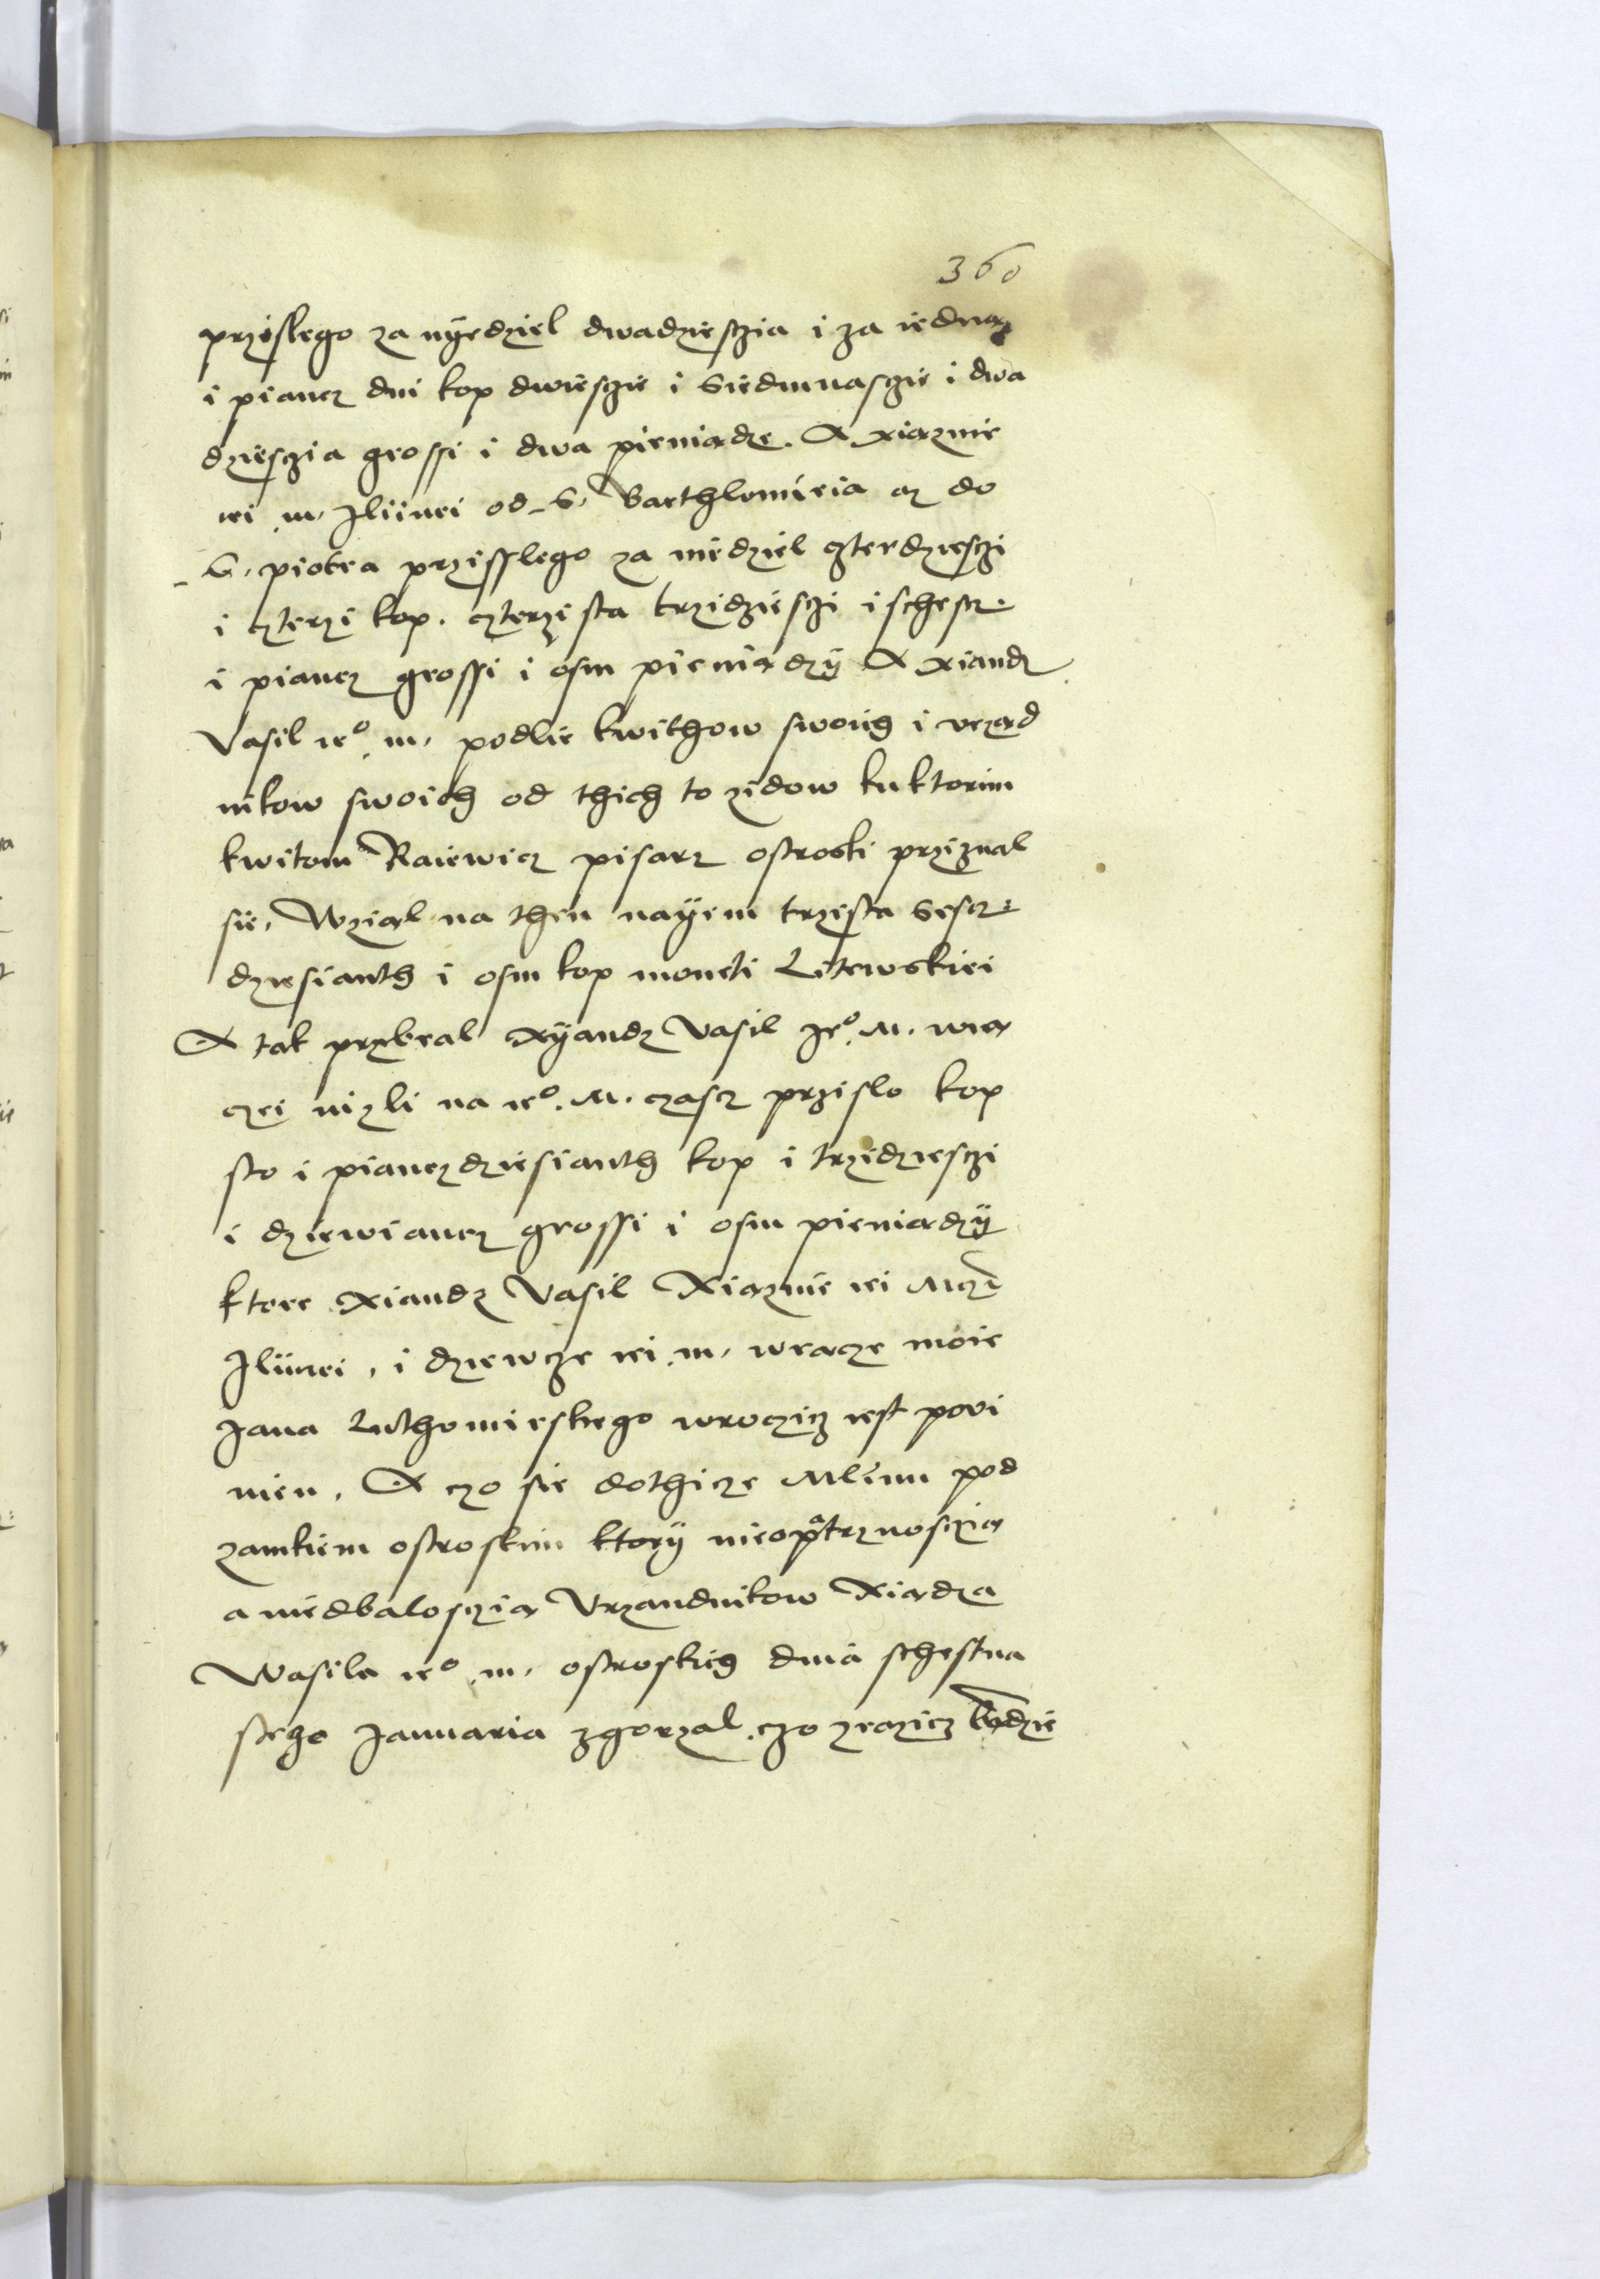 360
przislego za nyedziel dwadziesczia i za iedną
i piancz dni kop dwiesczie i siedmnasczie i dwa
dziesczia grossi i dwa pieniądze. A xiąznie
iei m. Iliinei od S. Barthlomieia aż do
S. piotra przisslego za niedziel czterdzieszi
i czterzi kop. czterzista trzidziesczi i schescz
i piancz grossi i osm pieniądzy A xiandz
Vasil ieº m. podlie kwithow swoiig i vrząd
nikow swoich od thich to zidow kuktorim
kwitom Raiewicz pisarz ostroski przyznal
sie, Wziąl na then nayem trzista sescz
dziesianth i osm kop moneti Litewskiei
A tak przebral xyandz Vasil Jeº. M. wią
czei nizli na ieº. M. czascz przislo kop
sto i pianczdziesianth kop i trzidziesczi
i dziewiancz grossi i osm pieniądzy
ktore xiandz Vasil Xiąznie iei Mczi
Iliinei, i dziewcze iei m. wracze moie
Jana Luthomierskego wroczicz iest povi
nien. A czo sie dothicze Mlinu pod
zamkiem ostroskim ktory nieopatrznosczią
a niedbalosczią Vrzandnikow Xiądza
Wasila ieº m. ostroskieg dnia schestna
stego Januaria zgorzal. czo zrazicz bądzie